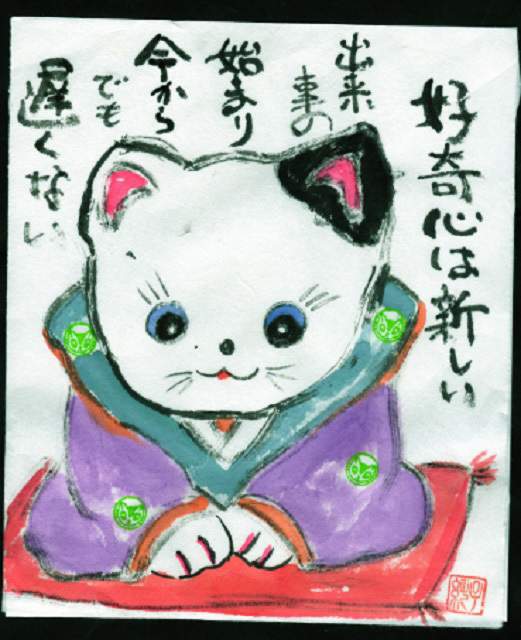 好奇心は新しい
出来
事の
始まり
今から
でも
遅くない